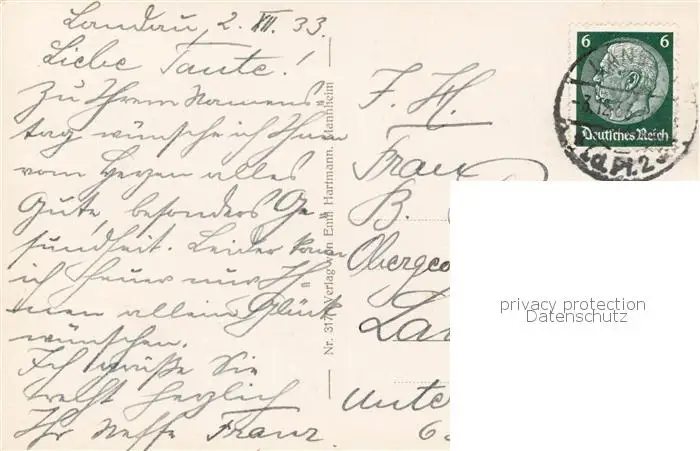 Landau, 2. XII. 33.
Liebe Tante!
Zu Ihrem Namens=
tag wünsche ich Ihnen
vom Herzen alles
Gute, besonders Ge=
sundheit. Leider kann
ich heuer nur Ih=
nen allein Glück
wünschen.
Ich grüße Sie
recht herzlich
Ihr Neffe Franz.
Nr. 317 Verlag von Emil Hartmann, Mannheim
F. H.
B.
Obergeo
La
Unte
6
6 6
Deutsches Reich
privacy protection
Datenschutz